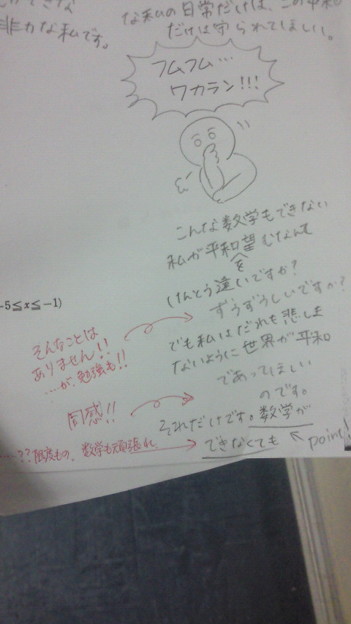 な私の日常だけは、この平和
だけは守られてほしい。
非力な私です。
フムフム…
ワカラン!!!
こんな数学もできない
私が平和を望むなんて
けんとう違いですか?
ずうずうしいですか?
でも私はだれも悲しま
ないように世界が平和
であってほしい
のです。
それだけです。数学が
できなくても
point!
-5≦x≦-1)
そんなことは
ありません!!
…が、勉強も!!
同感!!
数学も頑張れ